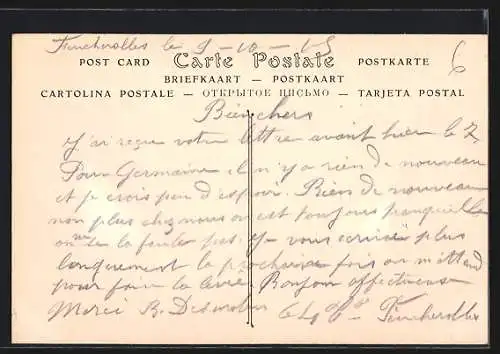 Fincherolles le 9-10-15
POST CARD Carte Postale POSTKARTE
BRIEFKAART — POSTKAART
CARTOLINA POSTALE — ОТКРЫТОЕ ПИСЬМО — TARJETA POSTAL
6
Bien chers
J'ai reçu votre lettre avant hier le 7
Pour Germaine il n'y a rien de nouveau
et je crois pas d'espoir. Rien de nouveau
non plus chez nous on est toujours tranquille
on ne la foule pas. Je vous écrirai plus
longuement la prochaine fois on m'attend
pour faire la Bonjour affectueux
Merci B. le Fincherolles